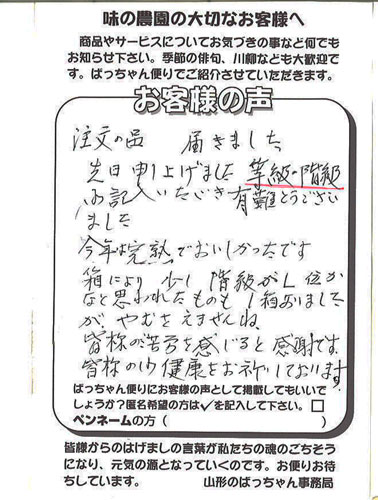 味の農園の大切なお客様へ
商品やサービスについてお気づきの事など何でも
お知らせ下さい。季節の俳句、川柳なども大歓迎で
す。ばっちゃん便りでご紹介させていただきます。
お客様の声
注文の品 届きました
先日申し上げました等級・階級
御記入いただき有難とうござい
ました
今年は完熟でおいしかったです
箱により少し階級がL位か
なと思われたものも1箱ありました
が、やむをえませんね
皆様の苦労を感じると感謝です
皆様の御健康をお祈りしております
ばっちゃん便りにお客様の声として掲載してもいいで
しょうか?匿名希望の方は✓を記入して下さい。□
ペンネームの方( )
皆様からのはげましの言葉が私たちの魂のごちそう
になり、元気の源となっていくのです。お便りお待
ちしています。 山形のばっちゃん事務局